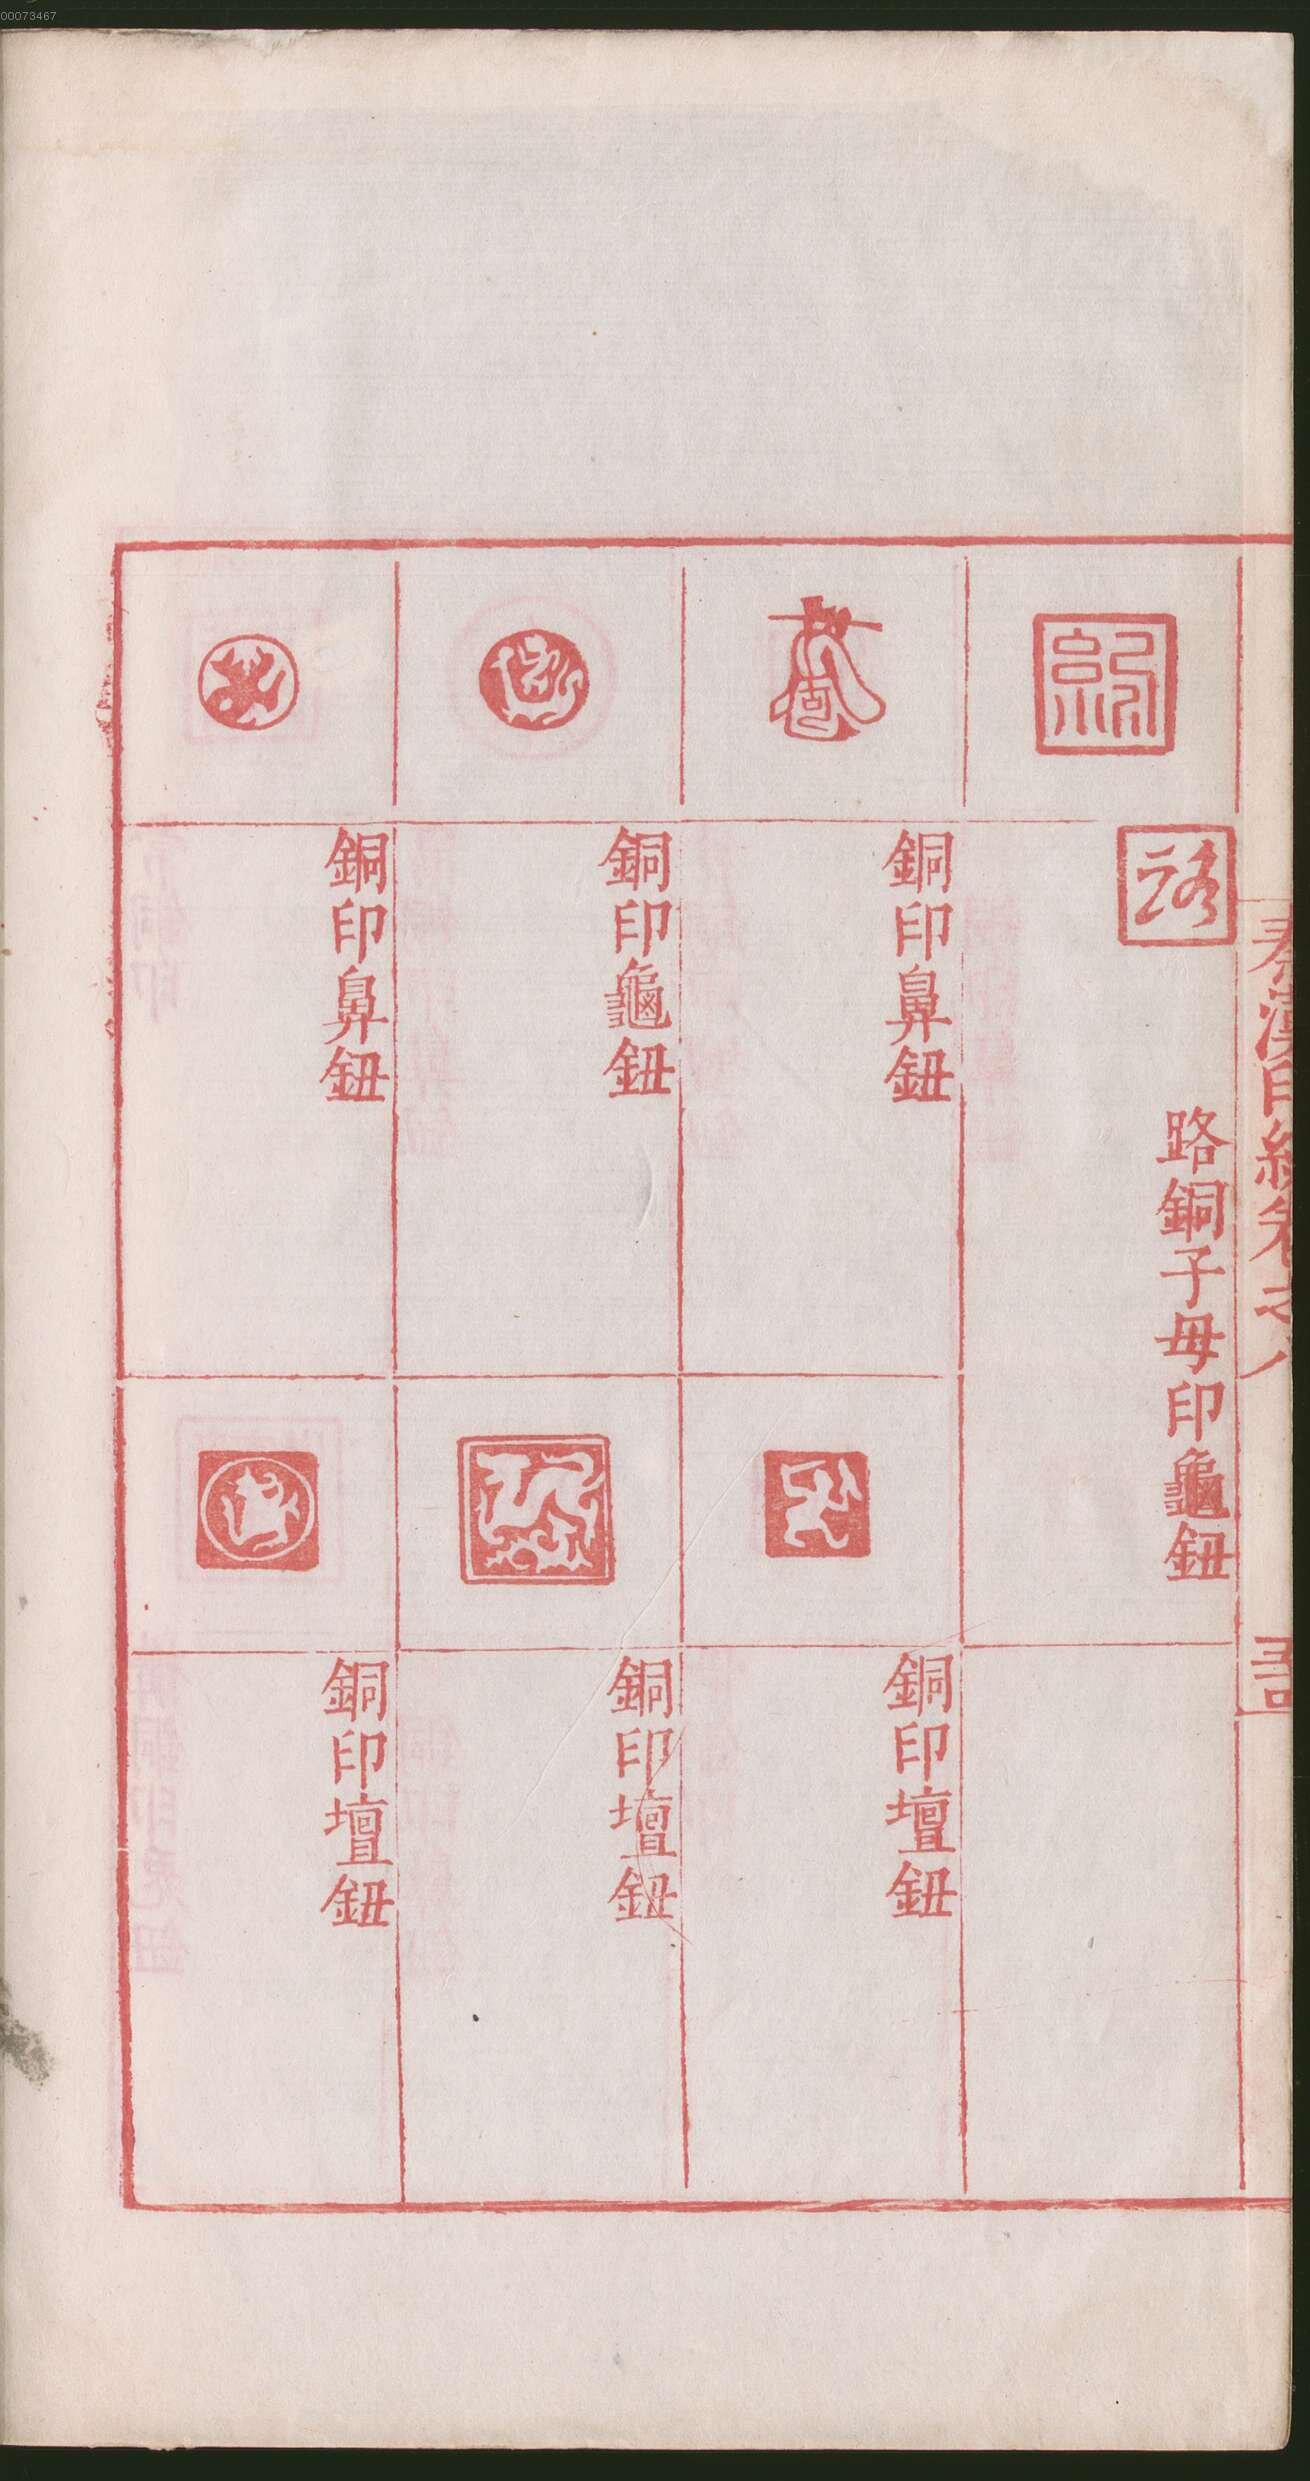 00073467
秦漢印統卷之八
路銅子母印龜鈕
銅印鼻鈕
銅印龜鈕
銅印鼻鈕
銅印壇鈕
銅印壇鈕
銅印壇鈕